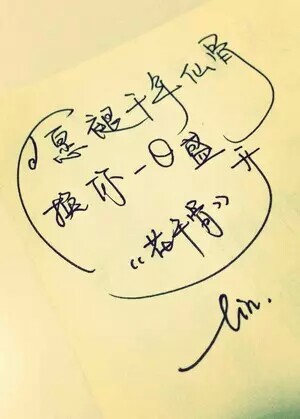 愿褪千年仙骨
换你一日盛开
《花千骨》
lin.